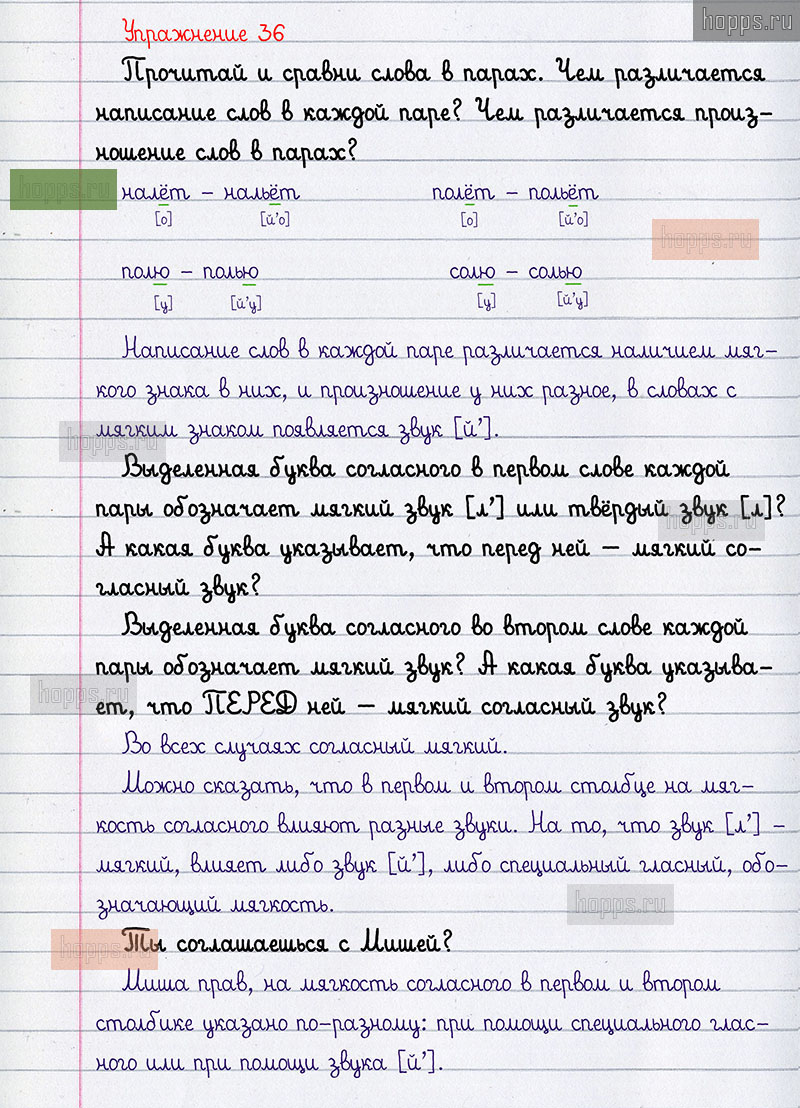 hopps.ru
Упражнение 36
Прочитай и сравни слова в парах. Чем различается
написание слов в каждой паре? Чем различается произ-
ношение слов в парах?
hopps.ru
налёт – нальёт полёт – польёт
[о] [й'о] [о] [й'о]
hopps.ru
полю – полью солю – солью
[у] [й'у] [у] [й'у]
Написание слов в каждой паре различается наличием мяг-
кого знака в них, и произношение у них разное, в словах с
мягким знаком появляется звук [й'].
hopps.ru
Выделенная буква согласного в первом слове каждой
пары обозначает мягкий звук [л'] или твёрдый звук [л]?
hopps.ru
А какая буква указывает, что перед ней – мягкий со-
гласный звук?
Выделенная буква согласного во втором слове каждой
пары обозначает мягкий звук? А какая буква указыва-
hopps.ru
ет, что ПЕРЕД ней – мягкий согласный звук?
Во всех случаях согласный мягкий.
Можно сказать, что в первом и втором столбце на мяг-
кость согласного влияют разные звуки. На то, что звук [л'] –
мягкий, влияет либо звук [й'], либо специальный гласный, обо-
значающий мягкость.
hopps.ru
Ты соглашаешься с Мишей?
hopps.ru
Миша прав, на мягкость согласного в первом и втором
столбике указано по-разному: при помощи специального глас-
ного или при помощи звука [й'].